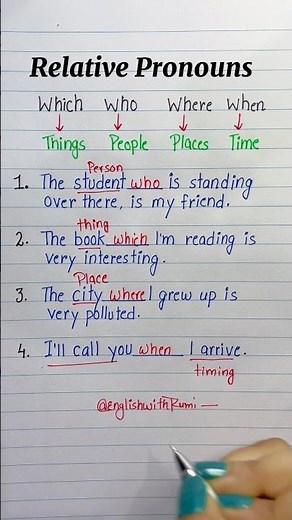 Relative Pronouns
Which Who Where When
Things People Places Time
Person
1. The student who is standing
over there, is my friend.
thing
2. The book which I'm reading is
very interesting.
Place
3. The city where I grew up is
very polluted.
4. I'll call you when I arrive.
timing
@EnglishwithRumi